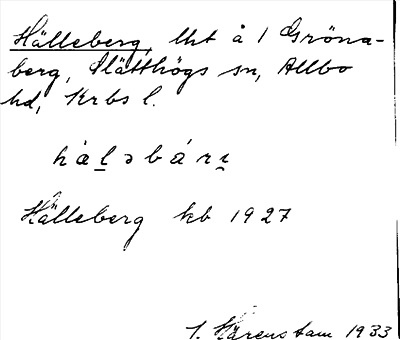 Hälleberg, lht å 1 Gröna-
berg, Slätthögs sn, Allbo
hd, Krbs l.
hàl̲əbárɩ̲
Hälleberg kb 1927
J. Härenstam 1933